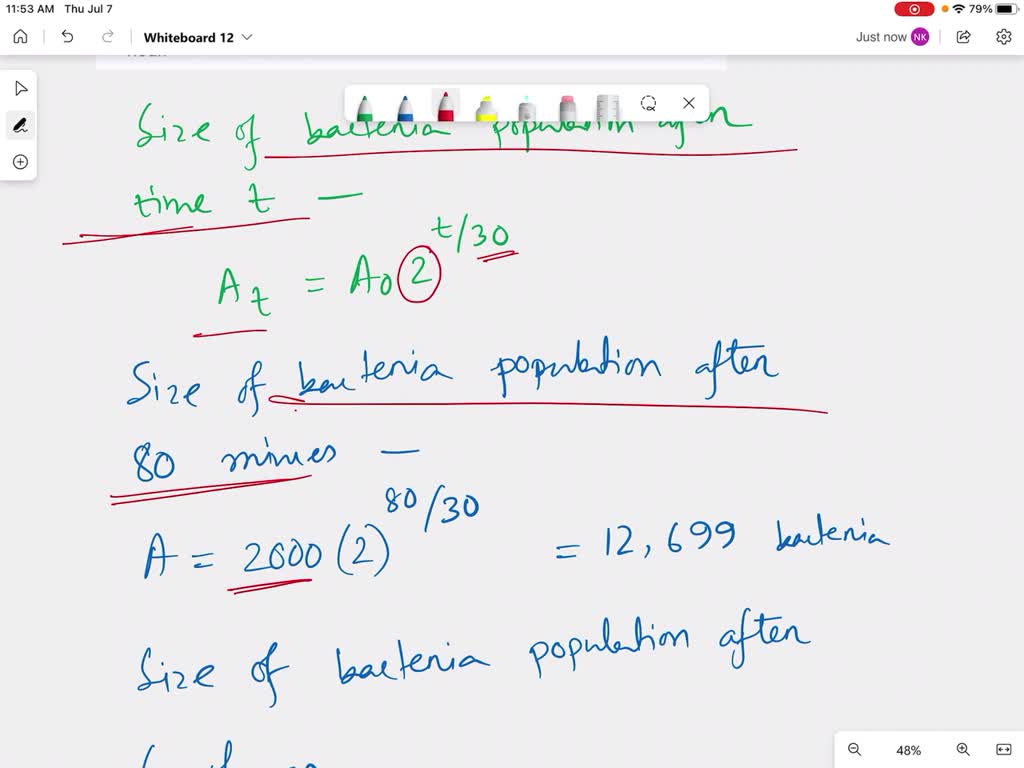 11:53 AM Thu Jul 7
79%
Whiteboard 12
Just now NK
Size of bacteria population after
time t —
At = A0 2^t/30
Size of bacteria population after
80 minues —
A = 2000 (2)^80/30 = 12,699 bacteria
Size of bacteria population after
48%